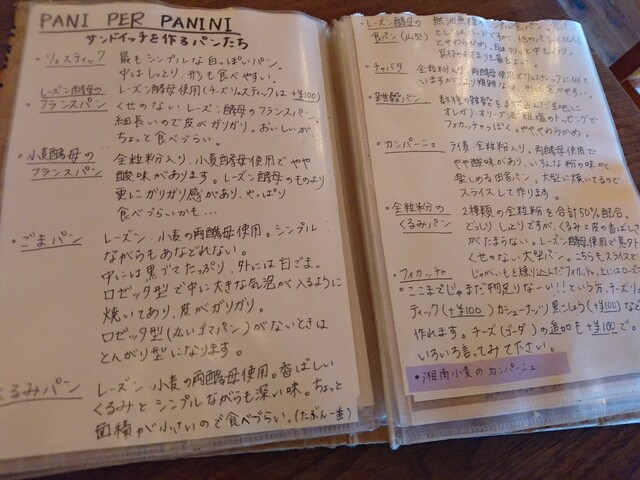 PANI PER PANINI
サンドイッチを作るパンたち
・リュスティック 最もシンプルな白っぽいパン。
中はしっとり、形も食べやすい。
・レーズン酵母の レーズン酵母使用(チーズリュスティックは+¥100)
フランスパン くせのない レーズン酵母のフランスパン。
細長いので皮がガリガリ。おいしいが
ちょっと食べづらい。
・小麦酵母の 全粒粉入り、小麦酵母使用でやや
フランスパン 酸味があります。レーズン酵母のものより
更にガリガリ感があり、やっぱり
食べづらいかも…
・ごまパン レーズン、小麦の両酵母使用。シンプル
ながらもあなどれない。
中には黒ゴマたっぷり、外には白ごま。
ロゼッタ型で中に大きな気泡が入るように
焼いてあり、皮がガリガリ。
ロゼッタ型(丸いゴマパン)がないときは
とんがり型になります。
くるみパン レーズン、小麦の両酵母使用。香ばしい
くるみとシンプルながらも深い味。ちょっと
面積が小さいので食べづらい。(たぶん一番)
・レーズン酵母の
食パン(山型)
・チャバタ 全粒粉入り、両酵母使用
・雑穀パン
オレガノ、オリーブ油、粗塩のトッピングで
フォカッチャっぽく、ややややわらかめ。
・カンパーニュ ライ麦、全粒粉入り。両酵母使用で
やや酸味があり、いろんな粉の味が
楽しめる田舎パン。大型に焼いてるので
スライスして作ります。
・全粒粉の 2種類の全粒粉を合計50%配合。
くるみパン どっしり しっとりですが、くるみと皮の香ばしさ
がたまらない。レーズン酵母使用で意外と
くせのない大型パン。こちらもスライスで
・フォカッチャ じゃがいもを練り込んだフォカッチャ。上にはローズ
ここまでじゃまだ物足りなーい!!という方、チーズリュス
ティック(+¥100) カシューナッツ黒こしょう(+¥100)など
作れます。チーズ(ゴーダ)の追加も+¥100で。
いろいろ言ってみて下さい。
・湘南小麦のカンパーニュ